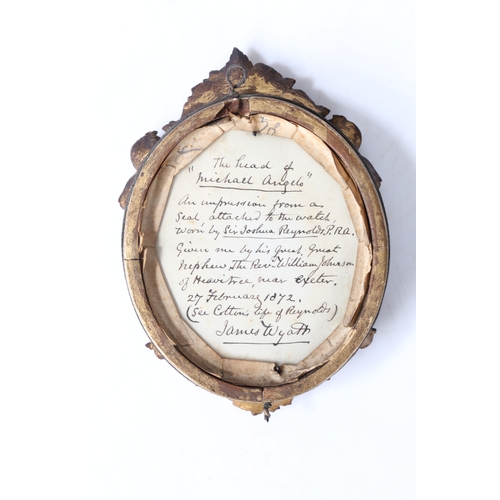 The head of
"Michael Angelo"
An impression from a
Seal attached to the watch
worn by Sir Joshua Reynolds, P.R.A.
Given me by his great, Great
Nephew The Revd William Johnson
of Heavitree, near Exeter.
27 February 1872.
(See Cotton's Life of Reynolds)
James Wyatt